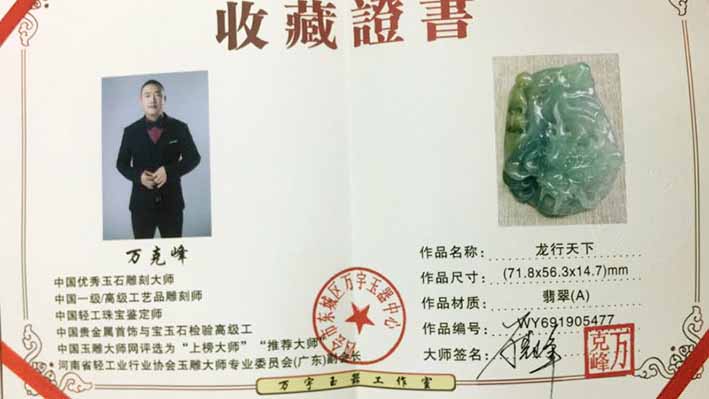 收藏證書
万克峰
中国优秀玉石雕刻大师
中国一级/高级工艺品雕刻师
中国轻工珠宝鉴定师
中国贵金属首饰与宝玉石检验高级工
中国玉雕大师网评选为“上榜大师”“推荐大师”
河南省轻工业行业协会玉雕大师专业委员会(广东)副会长
作品名称: 龙行天下
作品尺寸: (71.8x56.3x14.7)mm
作品材质: 翡翠(A)
作品编号: WY691905477
大师签名:
万克峰
东城区万宇玉器中心
万宇玉器工作室